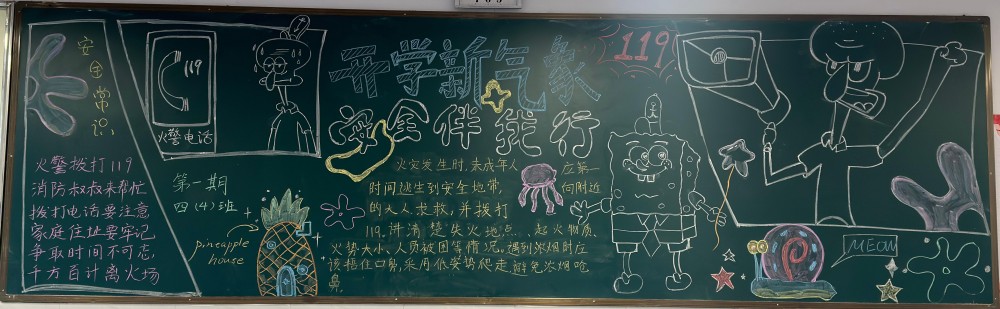 安全常识
火警拨打119
消防叔叔来帮忙
拨打电话要注意
家庭住址要牢记
争取时间不可忘
千方百计离火场
119
火警电话
第一期
四(4)班
pineapple
house
开学新气象
安全伴我行
119
火灾发生时,未成年人应第一
时间逃生到安全地带,向附近
的大人求救,并拨打
119,讲清楚失火地点、起火物质、
火势大小、人员被困等情况。遇到浓烟时应
该捂住口鼻,采用低姿势爬走,避免浓烟呛
鼻
MEOW